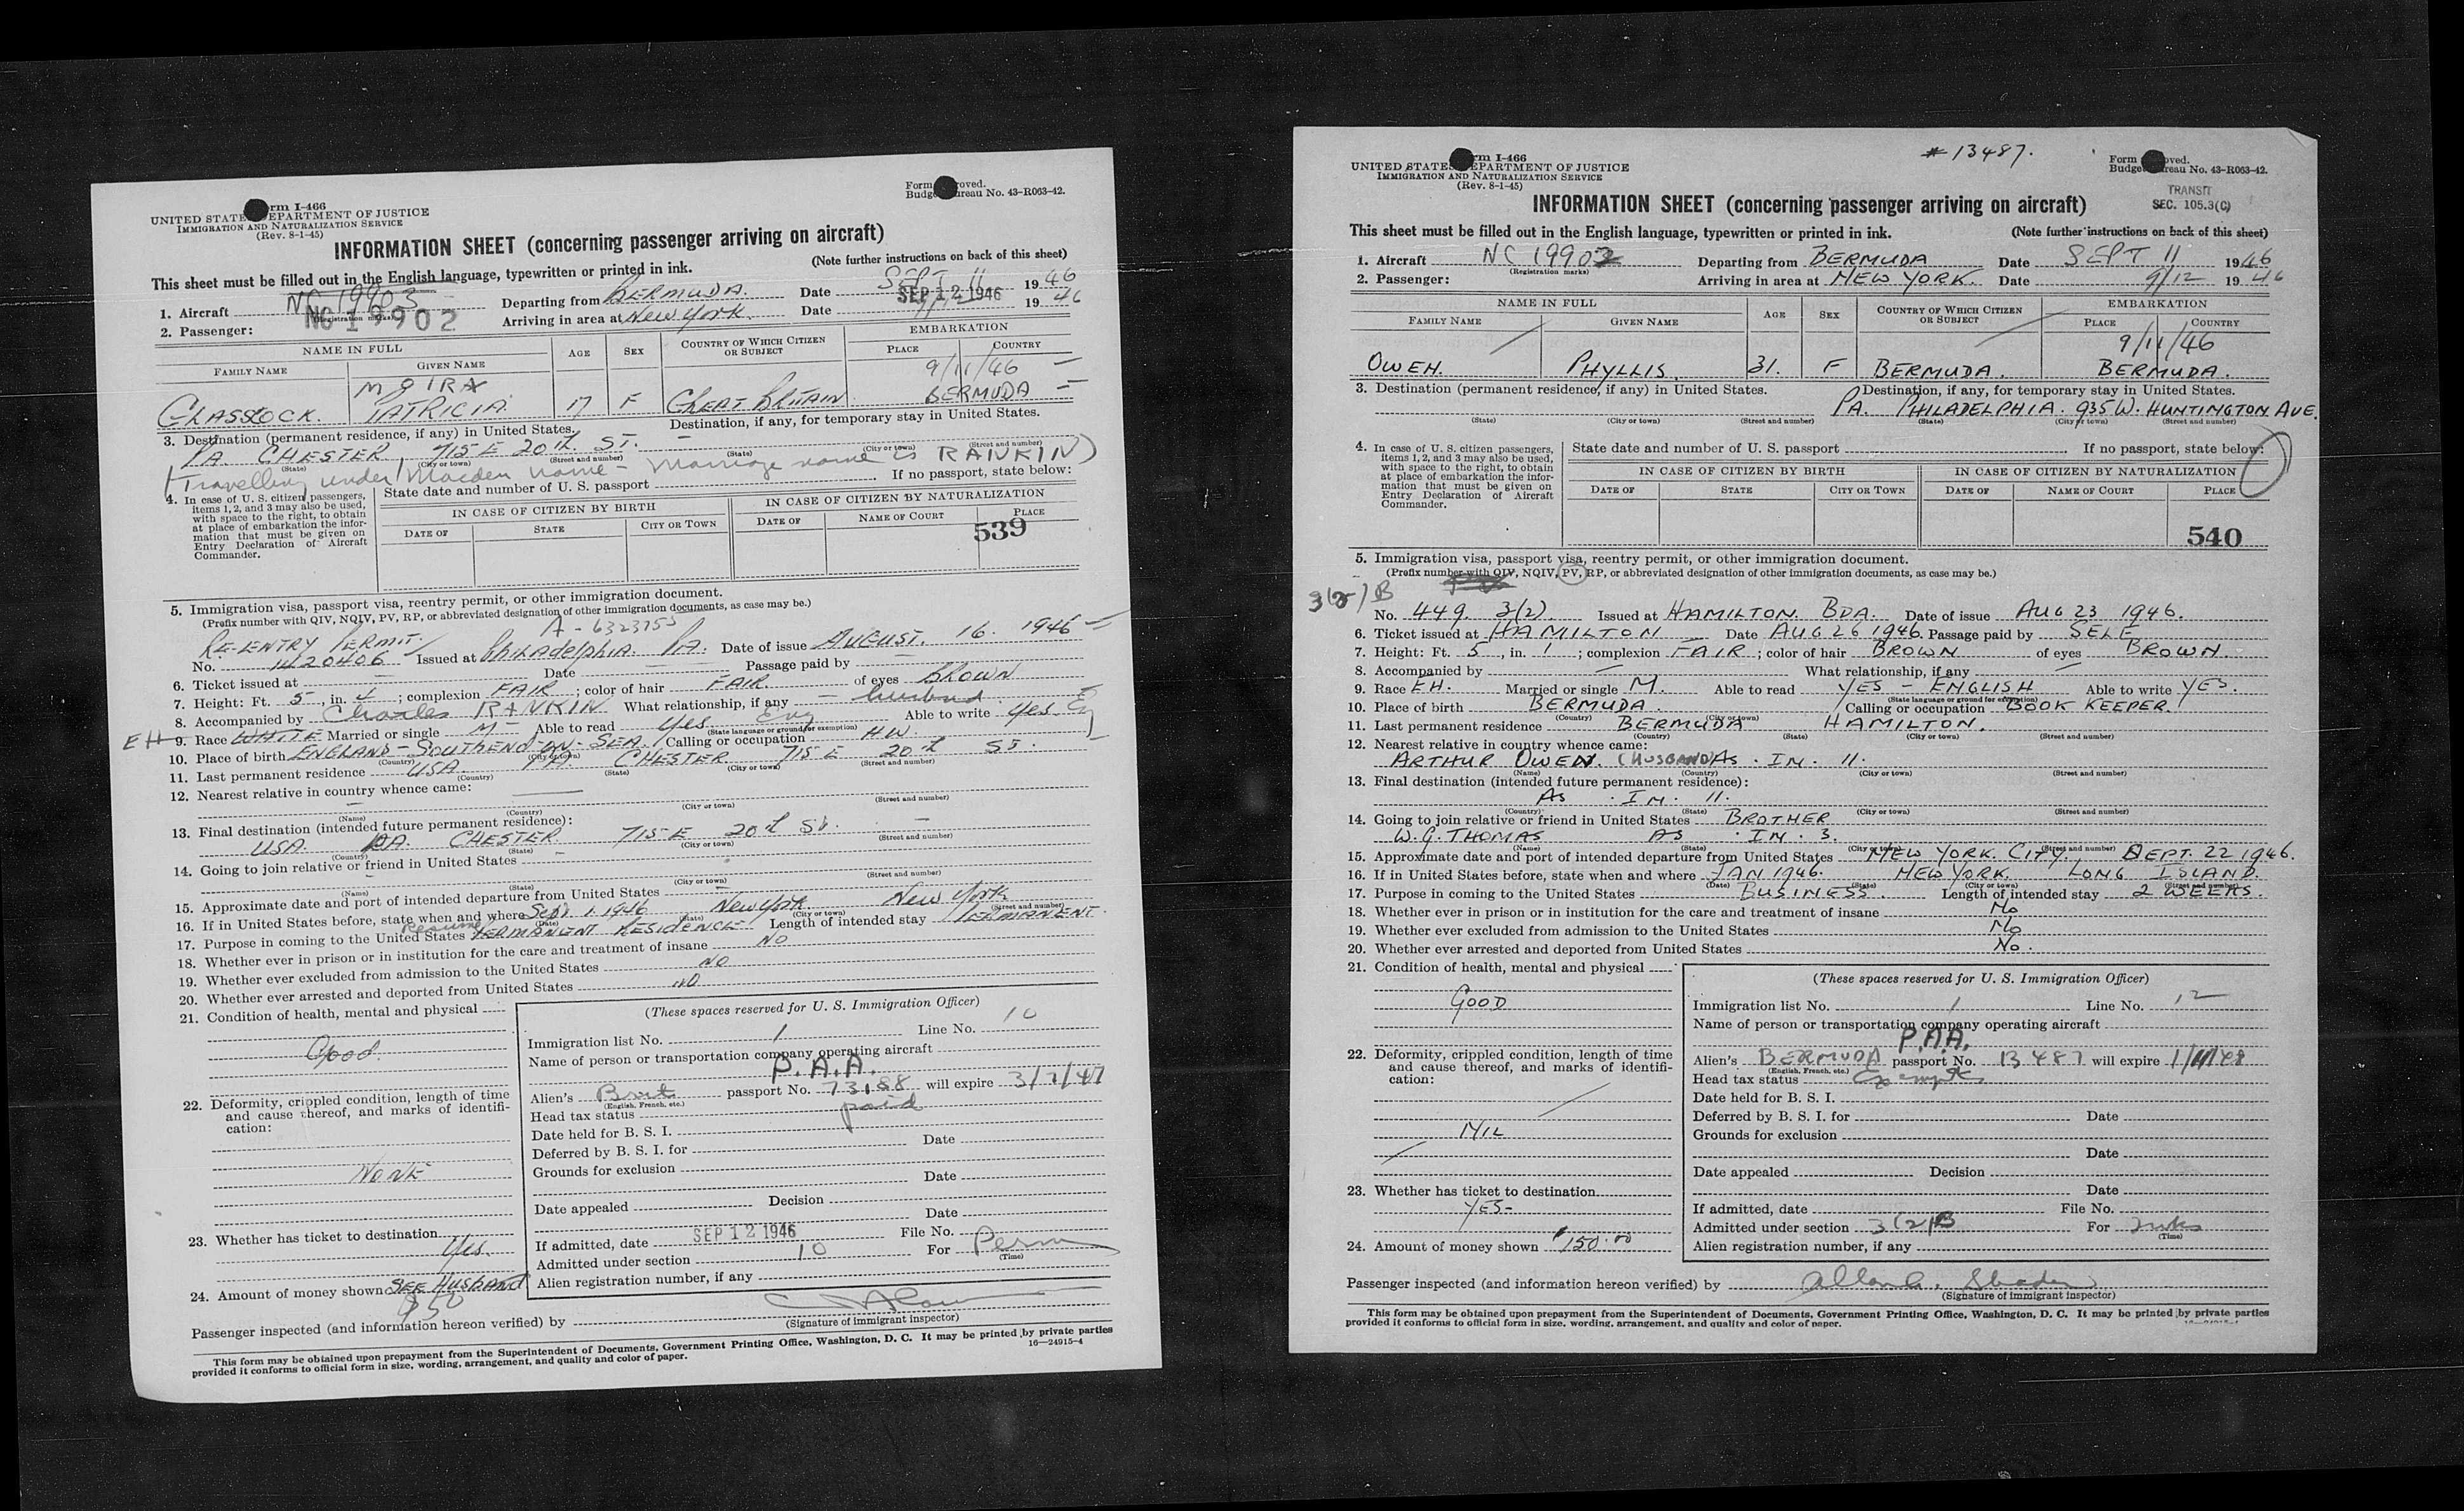 Form I-466
UNITED STATES DEPARTMENT OF JUSTICE
IMMIGRATION AND NATURALIZATION SERVICE
(Rev. 8-1-45)
Form Approved.
Budget Bureau No. 43-R063-42.
INFORMATION SHEET (concerning passenger arriving on aircraft)
This sheet must be filled out in the English language, typewritten or printed in ink.
(Note further instructions on back of this sheet)
1. Aircraft NC 19903 NC 19902 (Registration marks) Departing from BERMUDA. Date SEPT 11 1946
2. Passenger: Arriving in area at New York. Date SEP 12 1946 1946
NAME IN FULL AGE SEX COUNTRY OF WHICH CITIZEN OR SUBJECT EMBARKATION
FAMILY NAME GIVEN NAME PLACE COUNTRY
9/11/46
GLASSCOCK. MOIRA PATRICIA 17 F GREAT BRITAIN BERMUDA
3. Destination (permanent residence, if any) in United States. Destination, if any, for temporary stay in United States.
PA. CHESTER 715 E 20th ST.
(State) (City or town) (Street and number) (State) (City or town) (Street and number)
(Travelling under Maiden name - Marriage name is RANKIN)
4. In case of U. S. citizen passengers, items 1, 2, and 3 may also be used, with space to the right, to obtain at place of embarkation the information that must be given on Entry Declaration of Aircraft Commander.
State date and number of U. S. passport If no passport, state below:
IN CASE OF CITIZEN BY BIRTH IN CASE OF CITIZEN BY NATURALIZATION
DATE OF STATE CITY OR TOWN DATE OF NAME OF COURT PLACE
539
5. Immigration visa, passport visa, reentry permit, or other immigration document.
(Prefix number with QIV, NQIV, PV, RP, or abbreviated designation of other immigration documents, as case may be.)
RE-ENTRY PERMIT.
No. 1420406 Issued at Philadelphia PA. Date of issue AUGUST. 16. 1946
6. Ticket issued at Date Passage paid by
7. Height: Ft. 5, in. 4; complexion FAIR; color of hair FAIR of eyes BROWN
8. Accompanied by Charles RANKIN What relationship, if any husband
EH 9. Race WHITE Married or single M Able to read Yes Eng (State language or ground for exemption) Able to write Yes
10. Place of birth ENGLAND - SOUTHEND-ON-SEA. Calling or occupation HW.
(Country) (City or town)
11. Last permanent residence USA. PA. CHESTER 715 E 20th ST.
(Country) (State) (City or town) (Street and number)
12. Nearest relative in country whence came:
(Name) (Country) (City or town) (Street and number)
13. Final destination (intended future permanent residence):
USA. PA. CHESTER 715 E 20th St.
(Country) (State) (City or town) (Street and number)
14. Going to join relative or friend in United States
(Name) (State) (City or town) (Street and number)
15. Approximate date and port of intended departure from United States
16. If in United States before, state when and where Sept 1. 1946 New York New York
(Date) (State) (City or town) (Street and number)
17. Purpose in coming to the United States Resume PERMANENT RESIDENCE Length of intended stay PERMANENT.
18. Whether ever in prison or in institution for the care and treatment of insane NO
19. Whether ever excluded from admission to the United States NO
20. Whether ever arrested and deported from United States NO
21. Condition of health, mental and physical
Good.
22. Deformity, crippled condition, length of time and cause thereof, and marks of identification:
NONE
23. Whether has ticket to destination
Yes.
24. Amount of money shown SEE HUSBAND
$50
(These spaces reserved for U. S. Immigration Officer)
Immigration list No. 1 Line No. 10
Name of person or transportation company operating aircraft
P.A.A.
Alien's Brit passport No. 73188 will expire 3/7/47
(English, French, etc.)
Head tax status paid
Date held for B. S. I.
Deferred by B. S. I. for Date
Grounds for exclusion
Date
Date appealed Decision
Date
If admitted, date SEP 12 1946 File No.
Admitted under section 10 For Perm
(Time)
Alien registration number, if any
Passenger inspected (and information hereon verified) by
(Signature of immigrant inspector)
This form may be obtained upon prepayment from the Superintendent of Documents, Government Printing Office, Washington, D. C. It may be printed by private parties
provided it conforms to official form in size, wording, arrangement, and quality and color of paper.
16—24915-4
#13487.
Form I-466
UNITED STATES DEPARTMENT OF JUSTICE
IMMIGRATION AND NATURALIZATION SERVICE
(Rev. 8-1-45)
Form Approved.
Budget Bureau No. 43-R063-42.
TRANSIT
SEC. 105.3(C)
INFORMATION SHEET (concerning passenger arriving on aircraft)
This sheet must be filled out in the English language, typewritten or printed in ink.
(Note further instructions on back of this sheet)
1. Aircraft NC 19902 (Registration marks) Departing from BERMUDA Date SEPT 11 1946
2. Passenger: Arriving in area at NEW YORK. Date 9/12 1946
NAME IN FULL AGE SEX COUNTRY OF WHICH CITIZEN OR SUBJECT EMBARKATION
FAMILY NAME GIVEN NAME PLACE COUNTRY
9/11/46
OWEN. PHYLLIS. 31. F BERMUDA. BERMUDA.
3. Destination (permanent residence, if any) in United States. Destination, if any, for temporary stay in United States.
PA. PHILADELPHIA. 935 W. HUNTINGTON AVE.
(State) (City or town) (Street and number) (State) (City or town) (Street and number)
4. In case of U. S. citizen passengers, items 1, 2, and 3 may also be used, with space to the right, to obtain at place of embarkation the information that must be given on Entry Declaration of Aircraft Commander.
State date and number of U. S. passport If no passport, state below:
IN CASE OF CITIZEN BY BIRTH IN CASE OF CITIZEN BY NATURALIZATION
DATE OF STATE CITY OR TOWN DATE OF NAME OF COURT PLACE
540
5. Immigration visa, passport visa, reentry permit, or other immigration document.
(Prefix number with QIV, NQIV, PV, RP, or abbreviated designation of other immigration documents, as case may be.)
3(2)B
No. 449. 3(2). Issued at HAMILTON. BDA. Date of issue AUG 23 1946.
6. Ticket issued at HAMILTON Date AUG 26 1946. Passage paid by SELF
7. Height: Ft. 5, in. 1; complexion FAIR; color of hair BROWN of eyes BROWN.
8. Accompanied by What relationship, if any
9. Race EH. Married or single M. Able to read YES - ENGLISH Able to write YES.
(State language or ground for exemption)
10. Place of birth BERMUDA. Calling or occupation BOOK KEEPER.
(Country) (City or town)
11. Last permanent residence BERMUDA HAMILTON.
(Country) (State) (City or town) (Street and number)
12. Nearest relative in country whence came:
ARTHUR OWEN. (HUSBAND) AS. IN. 11.
(Name) (Country) (City or town) (Street and number)
13. Final destination (intended future permanent residence):
AS. IN. 11.
(Country) (State) (City or town) (Street and number)
14. Going to join relative or friend in United States BROTHER
W. G. THOMAS AS. IN. 3.
(Name) (State) (City or town) (Street and number)
15. Approximate date and port of intended departure from United States NEW YORK. CITY. SEPT. 22 1946.
16. If in United States before, state when and where JAN 1946. NEW YORK. LONG ISLAND.
(Date) (State) (City or town) (Street and number)
17. Purpose in coming to the United States BUSINESS. Length of intended stay 2 WEEKS.
18. Whether ever in prison or in institution for the care and treatment of insane No
19. Whether ever excluded from admission to the United States No
20. Whether ever arrested and deported from United States No.
21. Condition of health, mental and physical
GOOD
22. Deformity, crippled condition, length of time and cause thereof, and marks of identification:
NIL
23. Whether has ticket to destination
YES-
24. Amount of money shown $150.00
(These spaces reserved for U. S. Immigration Officer)
Immigration list No. 1 Line No. 12
Name of person or transportation company operating aircraft
P.A.A.
Alien's BERMUDA passport No. 13487 will expire
(English, French, etc.)
Head tax status Exempt
Date held for B. S. I.
Deferred by B. S. I. for Date
Grounds for exclusion
Date
Date appealed Decision
Date
If admitted, date File No.
Admitted under section 3(2)B For 2 wks
(Time)
Alien registration number, if any
Passenger inspected (and information hereon verified) by
(Signature of immigrant inspector)
This form may be obtained upon prepayment from the Superintendent of Documents, Government Printing Office, Washington, D. C. It may be printed by private parties
provided it conforms to official form in size, wording, arrangement, and quality and color of paper.